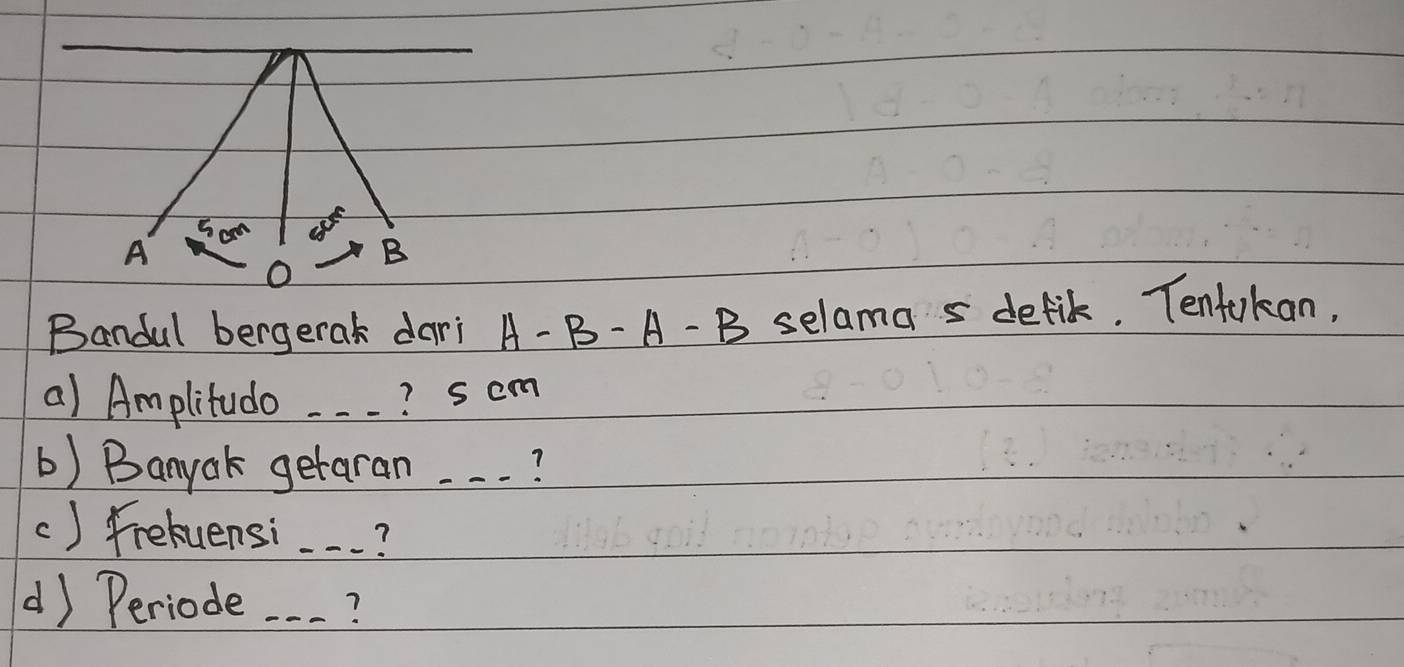 5 cm 5cm
A O B
Bandul bergerak dari A - B - A - B selama 5 detik. Tentukan.
a) Amplitudo ---? 5 cm
b) Banyak getaran ---?
c) Frekuensi ---?
d) Periode ---?